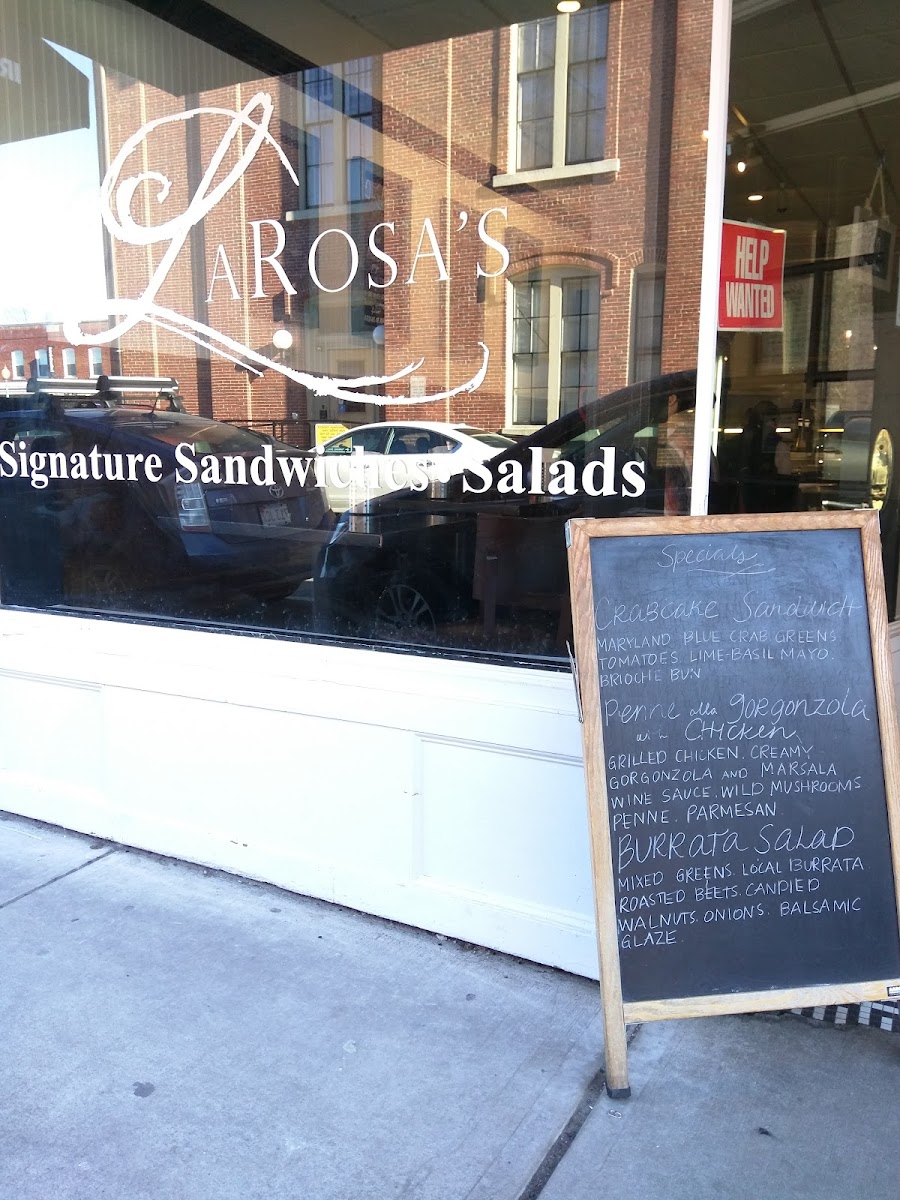 LaRosa's
Signature Sandwiches • Salads
HELP
WANTED
Specials
Crabcake Sandwich
MARYLAND BLUE CRAB. GREENS.
TOMATOES. LIME-BASIL MAYO.
BRIOCHE BUN
Penne alla gorgonzola
with CHicken
GRILLED CHICKEN. CREAMY
GORGONZOLA AND MARSALA
WINE SAUCE. WILD MUSHROOMS
PENNE. PARMESAN
BURRATA SALAD
MIXED GREENS. LOCAL BURRATA
ROASTED BEETS. CANDIED
WALNUTS. ONIONS. BALSAMIC
GLAZE.